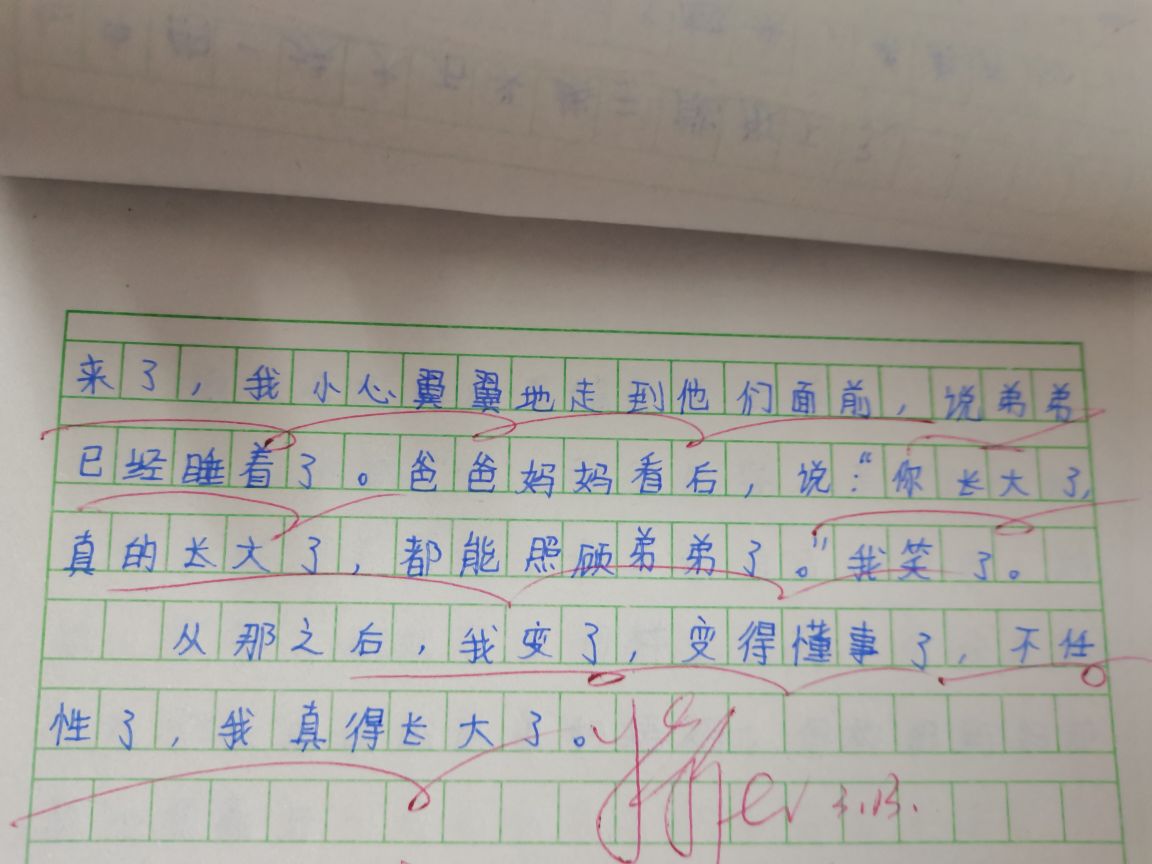 来了，我小心翼翼地走到他们面前，说弟弟
已经睡着了。爸爸妈妈看后，说：“你长大了，
真的长大了，都能照顾弟弟了。”我笑了。
从那之后，我变了，变得懂事了，不任
性了，我真得长大了。
3.13.